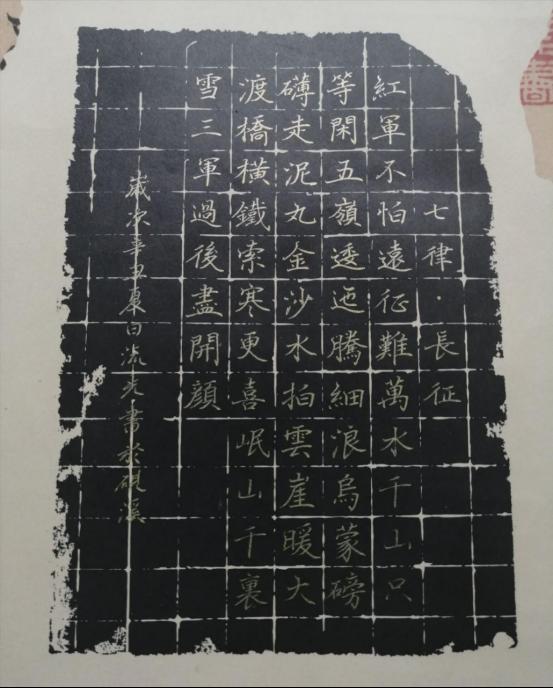 七律·長征
紅軍不怕遠征難萬水千山只
等閑五嶺逶迤騰細浪烏蒙磅
礴走泥丸金沙水拍雲崖暖大
渡橋橫鐵索寒更喜岷山千裏
雪三軍過後盡開顏
歲次辛丑夏日流光書於硯溪